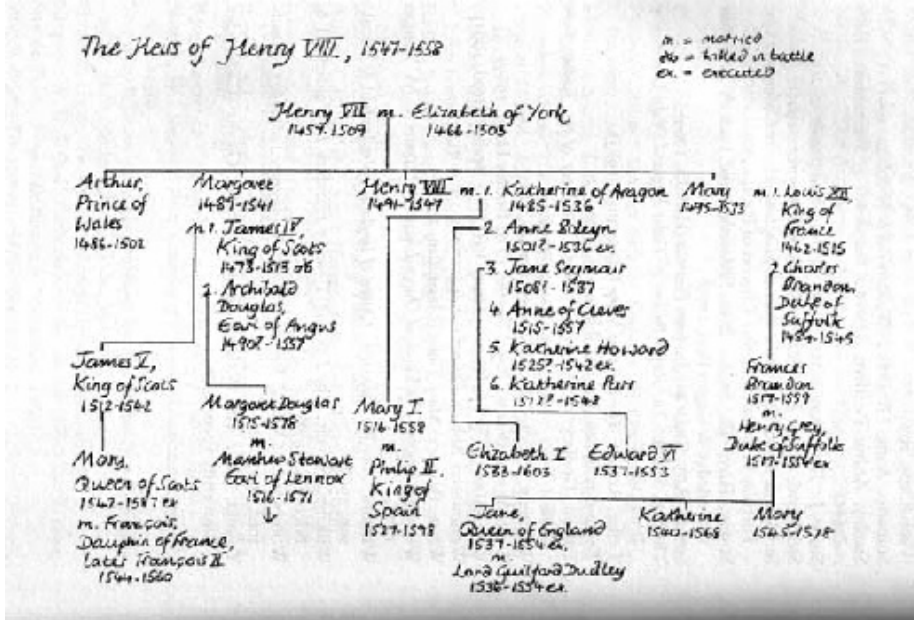 The Heirs of Henry VIII, 1547-1558
m = married
kb = killed in battle
ex. = executed
Henry VII m. Elizabeth of York
1457-1509 1466-1503
Arthur,
Prince of
Wales
1486-1502
Margaret
1489-1541
m 1. James IV,
King of Scots
1473-1513 kb
2. Archibald
Douglas,
Earl of Angus
1490?-1557
Henry VIII m. 1. Katherine of Aragon
1491-1547 1485-1536
2. Anne Boleyn
1501?-1536 ex.
3. Jane Seymour
1508?-1537
4. Anne of Cleves
1515-1557
5. Katherine Howard
1525?-1542 ex.
6. Katherine Parr
1512?-1548
Mary m 1. Louis XII,
King of
France
1462-1515
2 Charles
Brandon,
Duke of
Suffolk
1484-1545
James V,
King of Scots
1512-1542
Margaret Douglas
1515-1578
m.
Matthew Stewart
Earl of Lennox
1516-1571
Mary I
1516-1558
m.
Philip II,
King of
Spain
1527-1598
Elizabeth I
1533-1603
Edward VI
1537-1553
Frances
Brandon
1517-1559
m.
Henry Grey,
Duke of Suffolk
1517-1554 ex
Mary,
Queen of Scots
1542-1587 ex
m. François,
Dauphin of France,
later François II
1544-1560
Jane,
Queen of England
1537-1554 ex.
m
Lord Guilford Dudley
1536-1554 ex.
Katherine
1540-1568
Mary
1545-1578